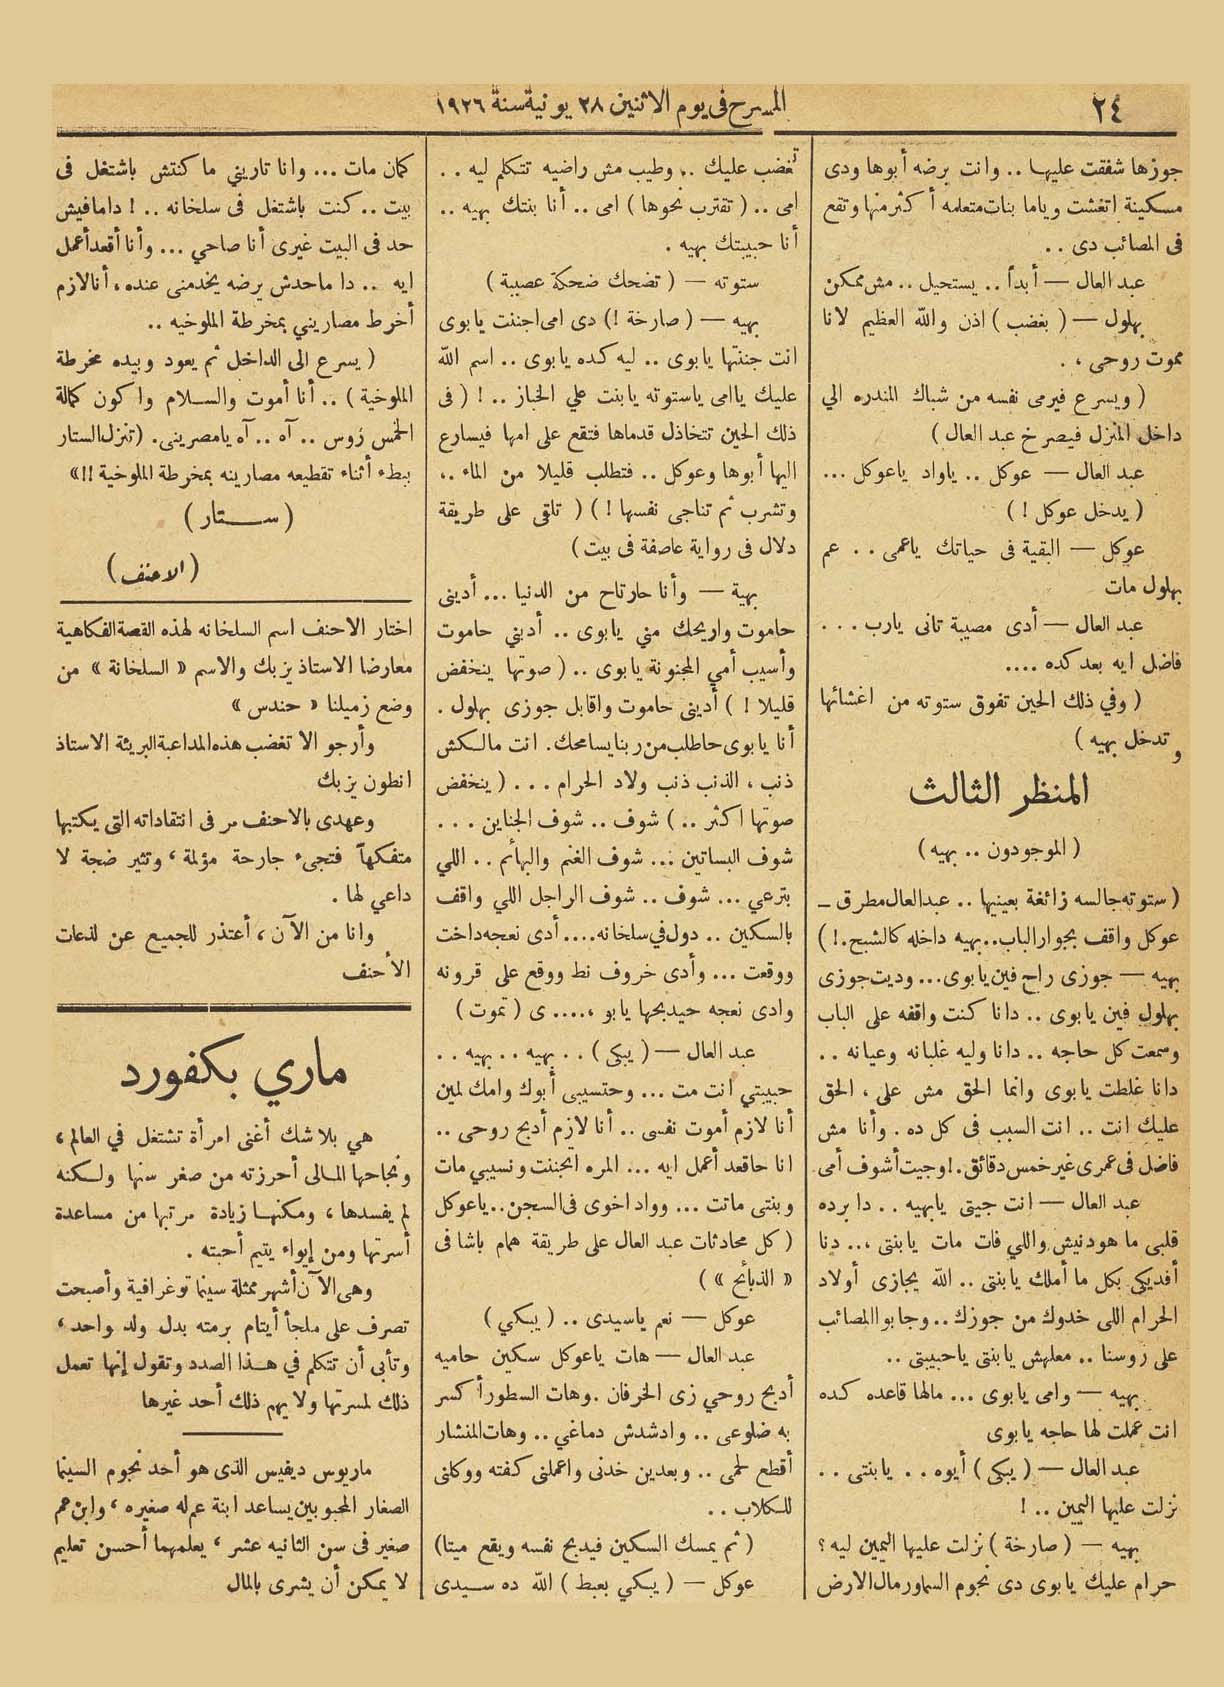 ٢٤
المسرح فى يوم الاثنين ٢٨ يونية سنة ١٩٢٦
جوزها شفقت عليها .. وانت برضه أبوها ودى
مسكينة اتغشت وياما بنات متعلمه أكثر منها وتقع
فى المصائب دى ..
عبد العال — أبداً .. يستحيل .. مش ممكن
بهلول — ( بغضب ) اذن والله العظيم لانا
مموت روحى ، .
( ويسرع فيرمى نفسه من شباك المندره الي
داخل المنزل فيصرخ عبد العال )
عبد العال — عوكل .. ياواد ياعوكل ...
( يدخل عوكل ! )
عوكل — البقية فى حياتك ياعمى .. عم
بهلول مات
عبد العال — أدى مصيبة تانى يارب ...
فاضل ايه بعد كده ....
( وفي ذلك الحين تفوق ستوته من اغشائها
وتدخل بهيه )
المنظر الثالث
( الموجودون .. بهيه )
( ستوته جالسه زائغة بعينيها .. عبد العال مطرق —
عوكل واقف بجوار الباب .. بهيه داخله كالشبح .! )
بهيه — جوزى راح فين يابوى ... وديت جوزى
بهلول فين يابوى .. دانا كنت واقفه على الباب
وسمعت كل حاجه .. دانا وليه غلبانه وعيانه ..
دانا غلطت يابوى وانما الحق مش على ، الحق
عليك انت .. انت السبب فى كل ده . وأنا مش
فاضل فى عمرى غير خمس دقائق .! وجيت أشوف أمى
عبد العال — انت جيتى يابهيه .. دا برده
قلبى ما هودنيش واللي فات مات يابنتى ... دنا
أفديكى بكل ما أملك يابنتى .. الله يجازى أولاد
الحرام اللى خدوك من جوزك .. وجابوا المصائب
على روسنا .. معلهش يابنتى ياحبيبتى ..
بهيه — وامى يابوى ... مالها قاعده كده
انت عملت لها حاجه يابوى
عبد العال — ( يبكى ) أيوه .. يابنتى ..
نزلت عليها اليمين .. !
بهيه — ( صارخة ) نزلت عليها اليمين ليه ؟
حرام عليك يابوى دى نجوم السما ورمال الارض
تغضب عليك .. وطيب مش راضيه تتكلم ليه ..
امى .. ( تقترب نحوها ) امى .. أنا بنتك بهيه ..
أنا حبيبتك بهيه .
ستوته — ( تضحك ضحكة عصبية )
بهيه — ( صارخة !) دى امى اجننت يابوى
انت جننتها يابوى .. ليه كده يابوى .. اسم الله
عليك ياامى ياستوته يابنت علي الخباز .. ! ( فى
ذلك الحين تتخاذل قدماها فتقع على امها فيسارع
اليها أبوها وعوكل .. فتطلب قليلا من الماء ..
وتشرب ثم تناجى نفسها ! ) ( تلقى على طريقة
دلال فى رواية عاصفة فى بيت )
بهية — وأنا حارتاح من الدنيا ... أدينى
حاموت واريحك مني يابوى .. أديني حاموت
وأسيب أمي المجنونة يابوى .. ( صوتها ينخفض
قليلا ! ) أدينى حاموت واقابل جوزى بهلول .
أنا يابوى حاطلب من ربنا يسامحك . انت مالكش
ذنب ، الذنب ذنب ولاد الحرام ... ( ينخفض
صوتها اكثر .. ) شوف .. شوف الجناين ...
شوف البساتين ... شوف الغنم والبهائم .. اللي
بترعي ... شوف .. شوف الراجل اللي واقف
بالسكين .. دول في سلخانه .... أدى نعجه داخت
ووقعت ... وأدى خروف نط ووقع على قرونه
وادى نعجه حيدبحها يابو ،.... ى ( تموت )
عبد العال — ( يبكى ) .. بهيه .. بهيه ..
حبيبتي انت مت ... وحتسيبى أبوك وامك لمين
أنا لازم أموت نفسى .. أنا لازم أدبح روحى ..
انا حاقعد أعمل ايه ... المره اتجننت ونسيبي مات
وبنتى ماتت ... وواد اخوى فى السجن .. ياعوكل
( كل محادثات عبد العال على طريقة همام باشا فى
« الذبائح » )
عوكل — نعم ياسيدى .. ( يبكي )
عبد العال — هات ياعوكل سكين حاميه
أدبح روحي زى الخرفان . وهات السطور أكسر
به ضلوعى .. وادشدش دماغي .. وهات المنشار
أقطع لحمى .. وبعدين خدنى واعملنى كفته ووكلنى
للكلاب ..
( ثم يمسك السكين فيدبح نفسه ويقع ميتا )
عوكل — ( يبكي بعبط ) الله ده سيدى
كمان مات ... وانا تاريني ما كنتش باشتغل فى
بيت .. كنت باشتغل فى سلخانه .. ! دا مافيش
حد فى البيت غيرى أنا صاحي ... وأنا أقعد أعمل
ايه .. دا ماحدش برضه يخدمنى عنده ، أنا لازم
أخرط مصاريني بمخرطة الملوخيه ..
( يسرع الى الداخل ثم يعود وبيده مخرطة
الملوخية ) .. أنا أموت والسلام واكون كمالة
الخمس رُوس .. آه .. آه يامصرينى . ( تنزل الستار
ببطء أثناء تقطيعه مصارينه بمخرطة الملوخية !!»
( ستار )
( الاحنف )
اختار الاحنف اسم السلخانه لهذه القصة الفكاهية
معارضا الاستاذ يزبك والاسم « السلخانة » من
وضع زميلنا « حندس »
وأرجو الا تغضب هذه المداعبة البريئة الاستاذ
انطون يزبك
وعهدى بالاحنف مر فى انتقاداته التى يكتبها
متفكهاً فتجىء جارحة مؤلمة ، وتثير ضجة لا
داعي لها .
وانا من الآن ، أعتذر للجميع عن لذعات
الأحنف
ماري بكفورد
هي بلا شك أغنى امرأة تشتغل في العالم ،
ونجاحها المالى أحرزته من صغر سنها ولكنه
لم يفسدها ، ومكنها زيادة مرتبها من مساعدة
أسرتها ومن إيواء يتيم أحبته .
وهى الآن أشهر ممثلة سينما توغرافية وأصبحت
تصرف على ملجأ أيتام برمته بدل ولد واحد ،
وتأبى أن تتكلم في هذا الصدد وتقول إنها تعمل
ذلك لمسرتها ولا يهم ذلك أحد غيرها
ماريوس ديفيس الذى هو أحد نجوم السينما
الصغار المحبوبين يساعد ابنة عم له صغيره ، وابن عم
صغير فى سن الثانيه عشر ، يعلمهما أحسن تعليم
لا يمكن أن يشرى بالمال